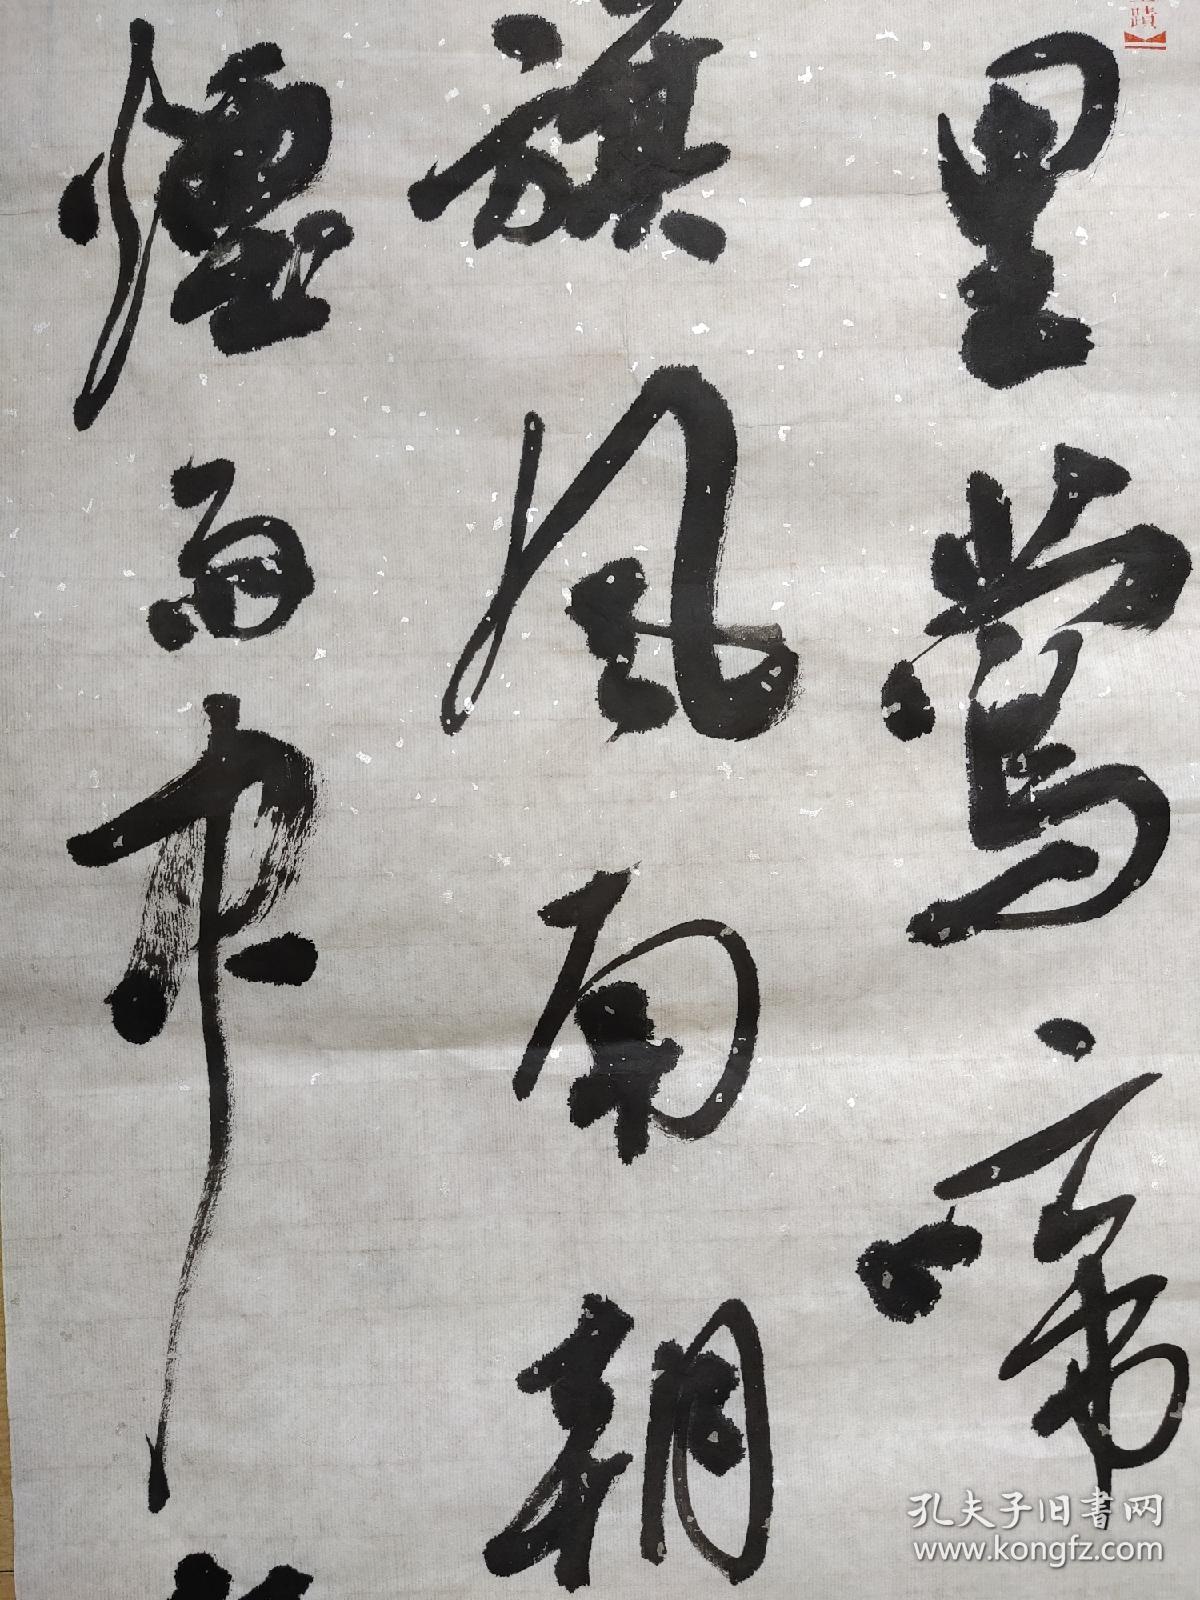 里鶯啼
旗風南朝
煙雨中
蹟
孔夫子旧書网
www.kongfz.com